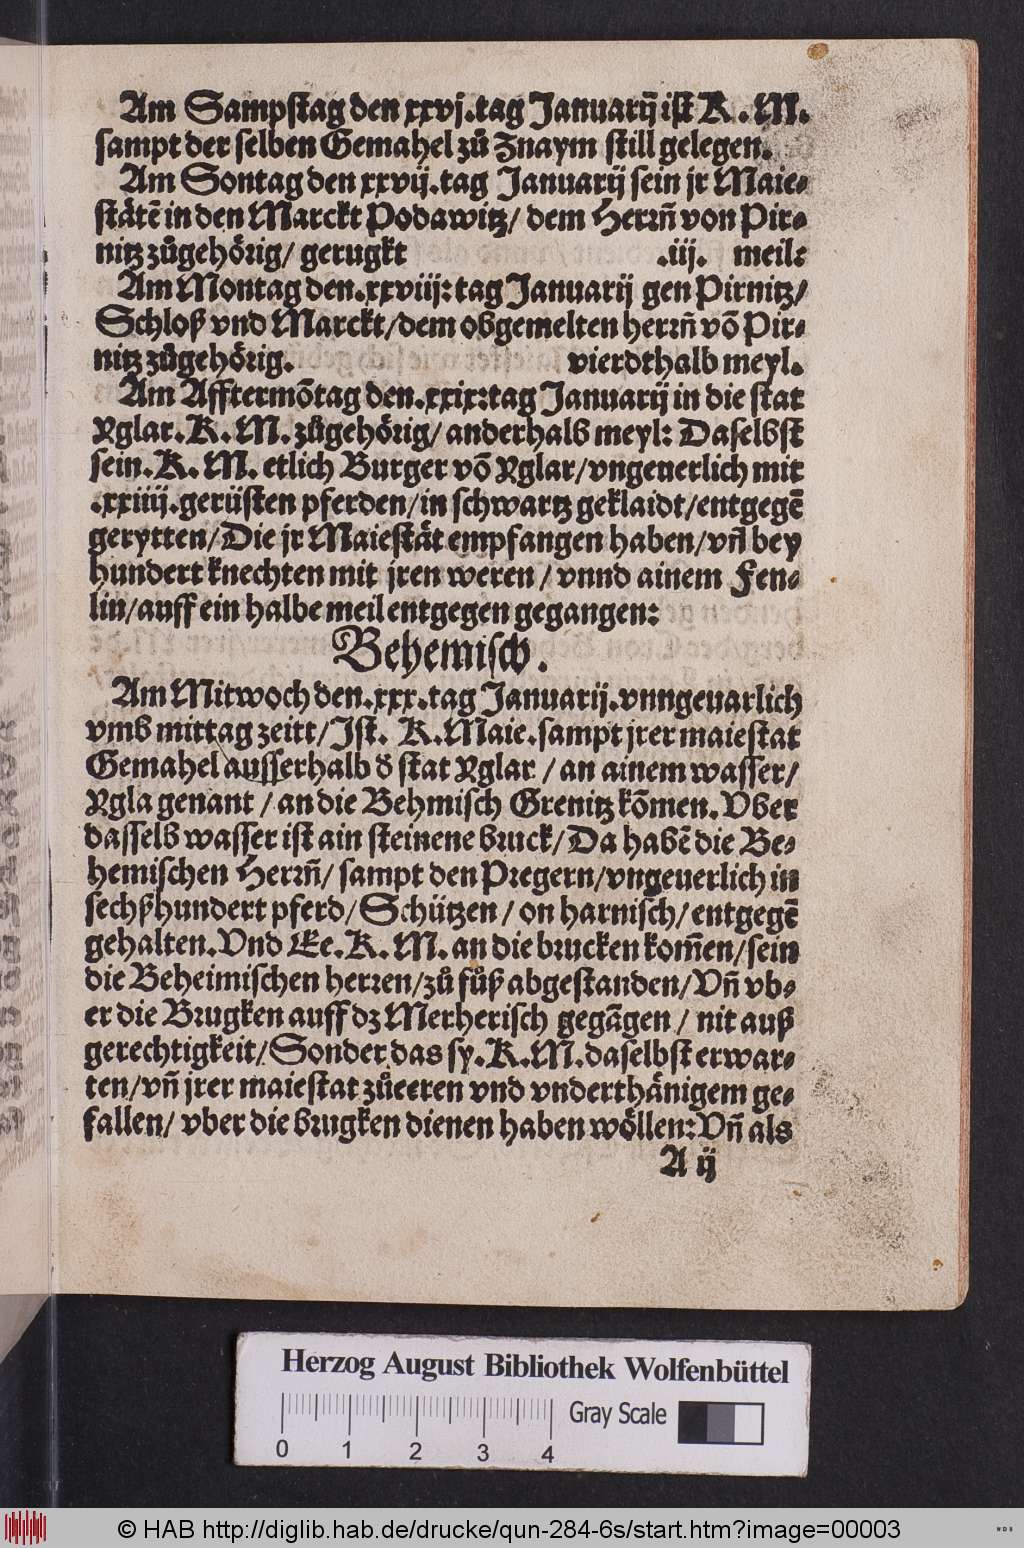 Am Sampstag den xxvj. tag Januarij ist K. M.
sampt der selben Gemahel zů Znaym still gelegen.
Am Sontag den xxvij. tag Januarij sein jr Maie-
stätē in den Marckt Podawitz/ dem Herrn̄ von Pir-
nitz zůgehörig/ gerugkt .iij. meil:
Am Montag den .xxviij: tag Januarij gen Pirnitz/
Schloß vnd Marckt/ dem obgemelten herrn̄ vō Pir-
nitz zůgehörig. vierdthalb meyl.
Am Afftermōtag den .xxix: tag Januarij in die stat
Yglar. K. M. zůgehörig/ anderhalb meyl: Daselbst
sein. K. M. etlich Burger vō Yglar/ vngeuerlich mit
.xxiiij. gerüsten pferden/ in schwartz geklaidt/ entgegē
gerytten/ Die jr Maiestät empfangen haben/ vn̄ bey
hundert knechten mit jren weren / vnnd ainem Fen-
lin/ auff ein halbe meil entgegen gegangen:
Behemisch.
Am Mitwoch den .xxx. tag Januarij. vnngeuarlich
vmb mittag zeitt/ Ist. K. Maie. sampt jrer maiestat
Gemahel ausserhalb d̄ stat Yglar / an ainem wasser/
Ygla genant / an die Behmisch Grenitz kōmen. Vber
dasselb wasser ist ain steinene bruck/ Da habē die Be-
hemischen Herrn̄/ sampt den Pregern/ vngeuerlich in
sechßhundert pferd/ Schützen / on harnisch/ entgegē
gehalten. Vnd Ee. K. M. an die brucken kom̄en/ sein
die Beheimischen herren/ zů fůß abgestanden/ Vn̄ vb-
er die Brugken auff dz Merherisch gegāgen / nit auß
gerechtigkeit/ Sonder das sy. K. M. daselbst erwar-
ten/ vn̄ jrer maiestat zůeeren vnd vnderthänigem ge-
fallen/ vber die brugken dienen haben wöllen: Vn̄ als
A ij
Herzog August Bibliothek Wolfenbüttel
Gray Scale
0 1 2 3 4
© HAB http://diglib.hab.de/drucke/qun-284-6s/start.htm?image=00003